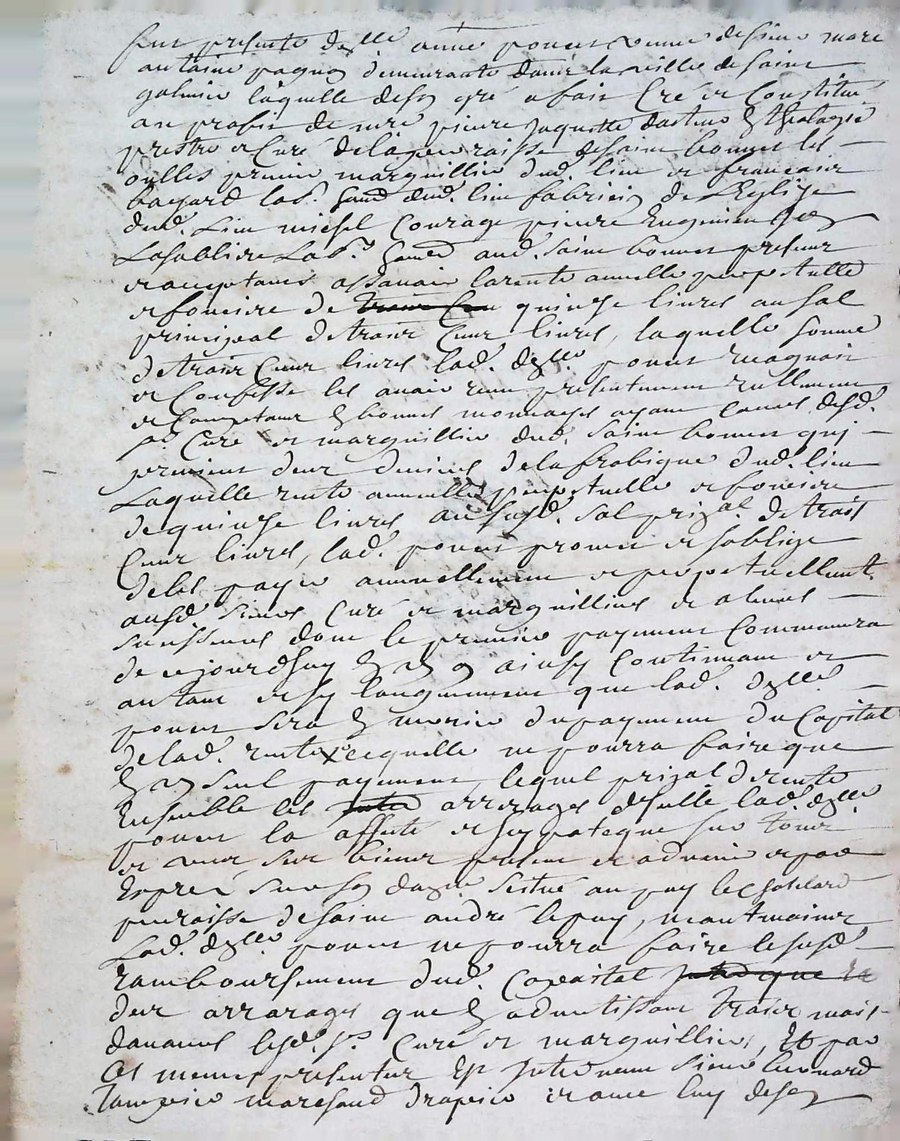 fut presente dzlle anne ponent veuve de sieur marc
antoine pagnon demeurante dans la ville de saint
galmier laquelle de son gré a fait créé et constitué
au profit de mre pierre Jaquette docteur en theologie
prestre et curé de la parraisse de saint bonnet les
oulles premier marguillier dud. lieu et francois
bayard lab. dud. lieu fabricien de l'Eglize
dud. lieu michel Courage pierre
Lasabliere Lab.r aud. saint bonnet presents
et acceptants assavoir la rente annuelle perpetuelle
et fonciere de quinze livres au sol
principal de trois cents livres, laquelle somme
de trois cents livres lad. dzlle ponent
et confesse les avoir receu presentement reellement
et comptant en bonnes monnoyes ayant cours desd.
srs curé et marguilliers dud. saint bonnet qui
provient deux deniers de la frabique dud. lieu
Laquelle rente annuelle perpetuelle et fonciere
de quinze livres au susd. sol prizal de trois
cents livres, lad. ponent promet et soblige
de les payer annuellement et perpetuellement
ausd. sieurs curé et marguilliers et a leurs
successeurs dont le premier payement commencera
de cejourdhuy en un an ainsy continuant et
autant et sy longuement que lad. dzlle
ponent sera en du payement du capital
de lad. rente lequelle ne pourra faire que
en un seul payement, lequel prizal de rente
Ensemble les arrerages dicelle lad. dzlle
ponent la affecté et hypoteque sur tous
et uns ses biens presents et advenir et par
Exprés sur son situé au puy le chatelard
parraisse de saint andré le puy, neantmoings
Lad. dzlle ponent ne pourra faire le susd.
ramboursement dud. Capaital
des arrarages que en advertissant trois mois
davance lesd. srs curé et marguilliers, Et par
ces memes presentes Est Intervenu sieur Leonard
marchand drapier et avec luy de son